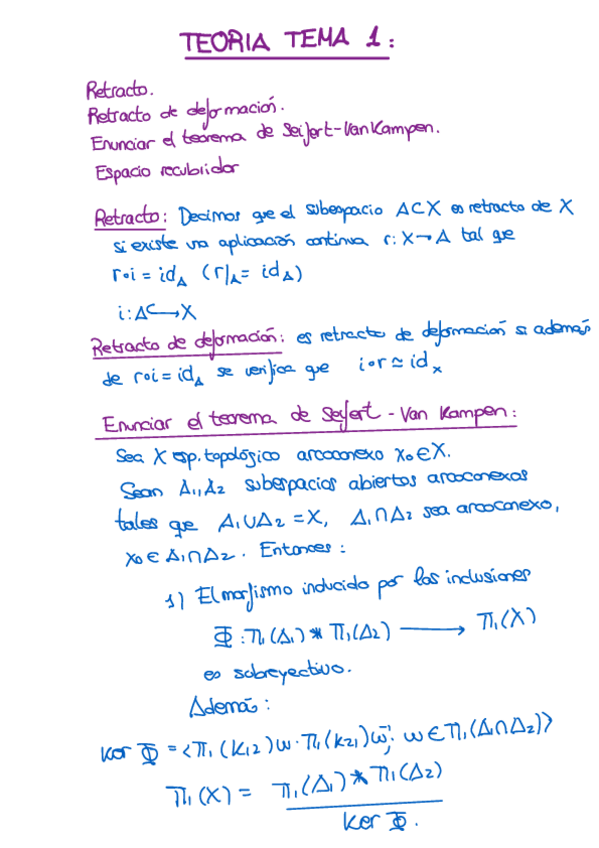 TEORIA TEMA 1:
Retracto.
Retracto de deformación.
Enunciar el teorema de Seifert-Van Kampen.
Espacio recubridor
Retracto: Decimos que el subespacio A⊂X es retracto de X
si existe una aplicación continua r: X→A tal que
r∘i = id_A (r|_A = id_A)
i: A↪X
Retracto de deformación: es retracto de deformación si además
de r∘i = id_A se verifica que i∘r ≃ id_x
Enunciar el teorema de Seifert - Van Kampen:
Sea X esp. topológico arcoconexo x₀∈X.
Sean A₁, A₂ subespacios abiertos arcoconexos
tales que A₁∪A₂ = X, A₁∩A₂ sea arcoconexo,
x₀ ∈ A₁∩A₂. Entonces:
1) El morfismo inducido por las inclusiones
Φ: π₁(A₁) * π₁(A₂) ⟶ π₁(X)
es sobreyectivo.
Además:
Ker Φ = <π₁(k₁₂)ω · π₁(k₂₁)ω⁻¹; ω ∈ π₁(A₁∩A₂)>
π₁(X) = π₁(A₁) * π₁(A₂)
Ker Φ.